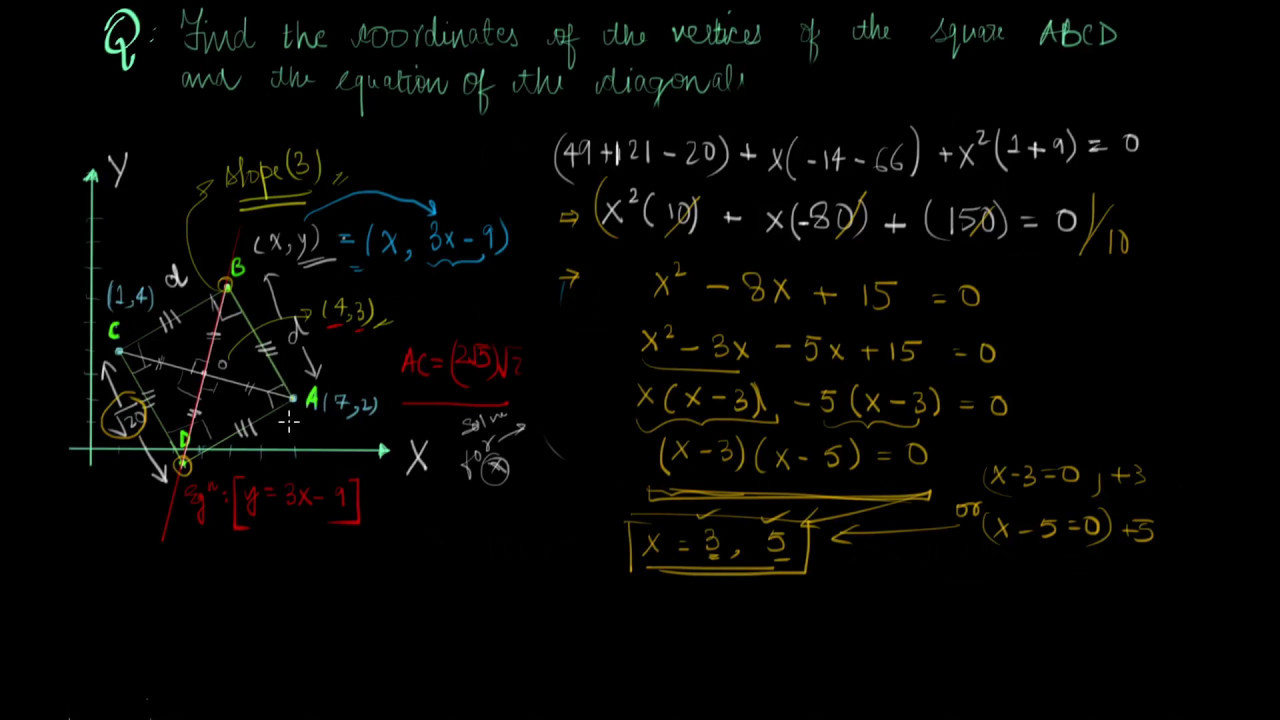 Q: Find the coordinates of the vertices of the square ABCD
and the equation of the diagonals
Y
slope(3)
(x, y) = (x, 3x-9)
B
d
(1,4)
C
(4,3)
d
AC = (2√5)√2
A(7,2)
√20
D
X
solve
for
x
Eqⁿ: [y = 3x - 9]
(49+121-20) + x(-14-66) + x²(1+9) = 0
⇒ (x²(10) + x(-80) + (150) = 0)/10
x² - 8x + 15 = 0
x² - 3x - 5x + 15 = 0
x(x-3) - 5(x-3) = 0
(x-3)(x-5) = 0
(x-3=0, +3
or
(x-5=0) +5
x = 3, 5